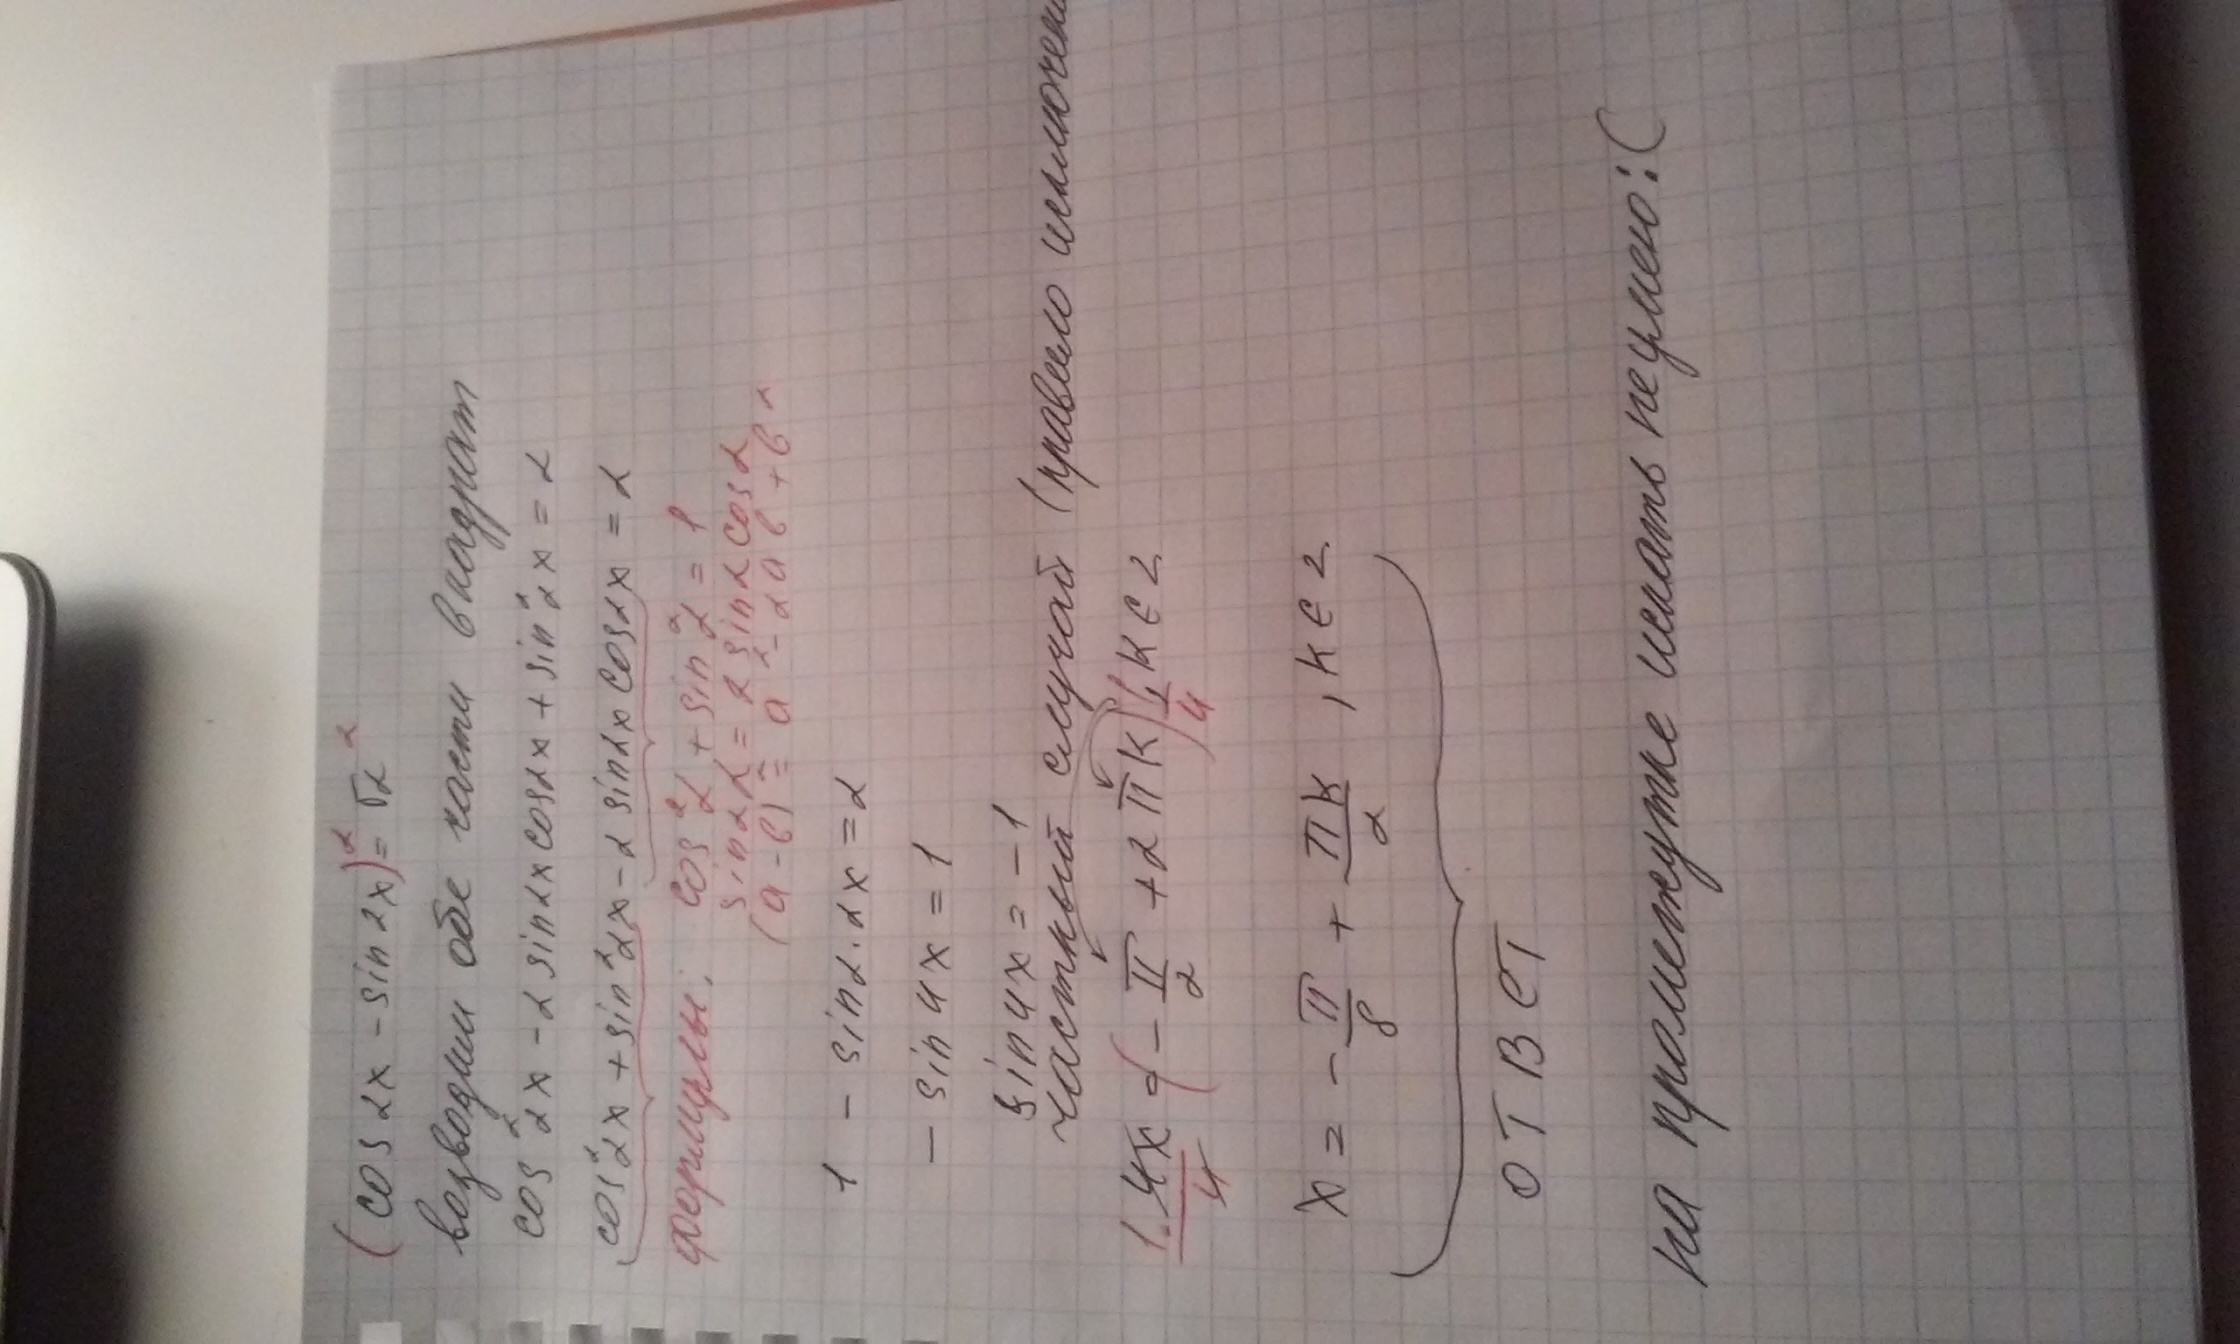 (cos 2x - sin 2x)² = √2²
возводим обе части в квадрат
cos² 2x - 2 sin 2x cos 2x + sin² 2x = 2
cos² 2x + sin² 2x - 2 sin 2x cos 2x = 2
формулы: cos² α + sin² α = 1
sin 2α = 2 sin α cos α
(a - b)² = a² - 2ab + b²
1 - sin 2·2x = 2
- sin 4x = 1
sin 4x = -1
частный случай (правило
1. 4x/4 = (-π/2 + 2πk) 1/4, k ∈ Z
x = -π/8 + πk/2, k ∈ Z
ОТВЕТ
на промежутке искать не умею :(